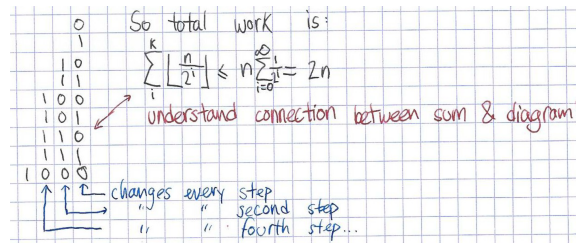 0
1
1 0
1 1
1 0 0
1 0 1
1 1 0
1 1 1
1 0 0 0
So total work is:
k ∑ i ⌊n/2^i⌋ ≤ n ∞ ∑ i=0 1/2^i = 2n
understand connection between sum & diagram
changes every step
" " second step
" " fourth step...